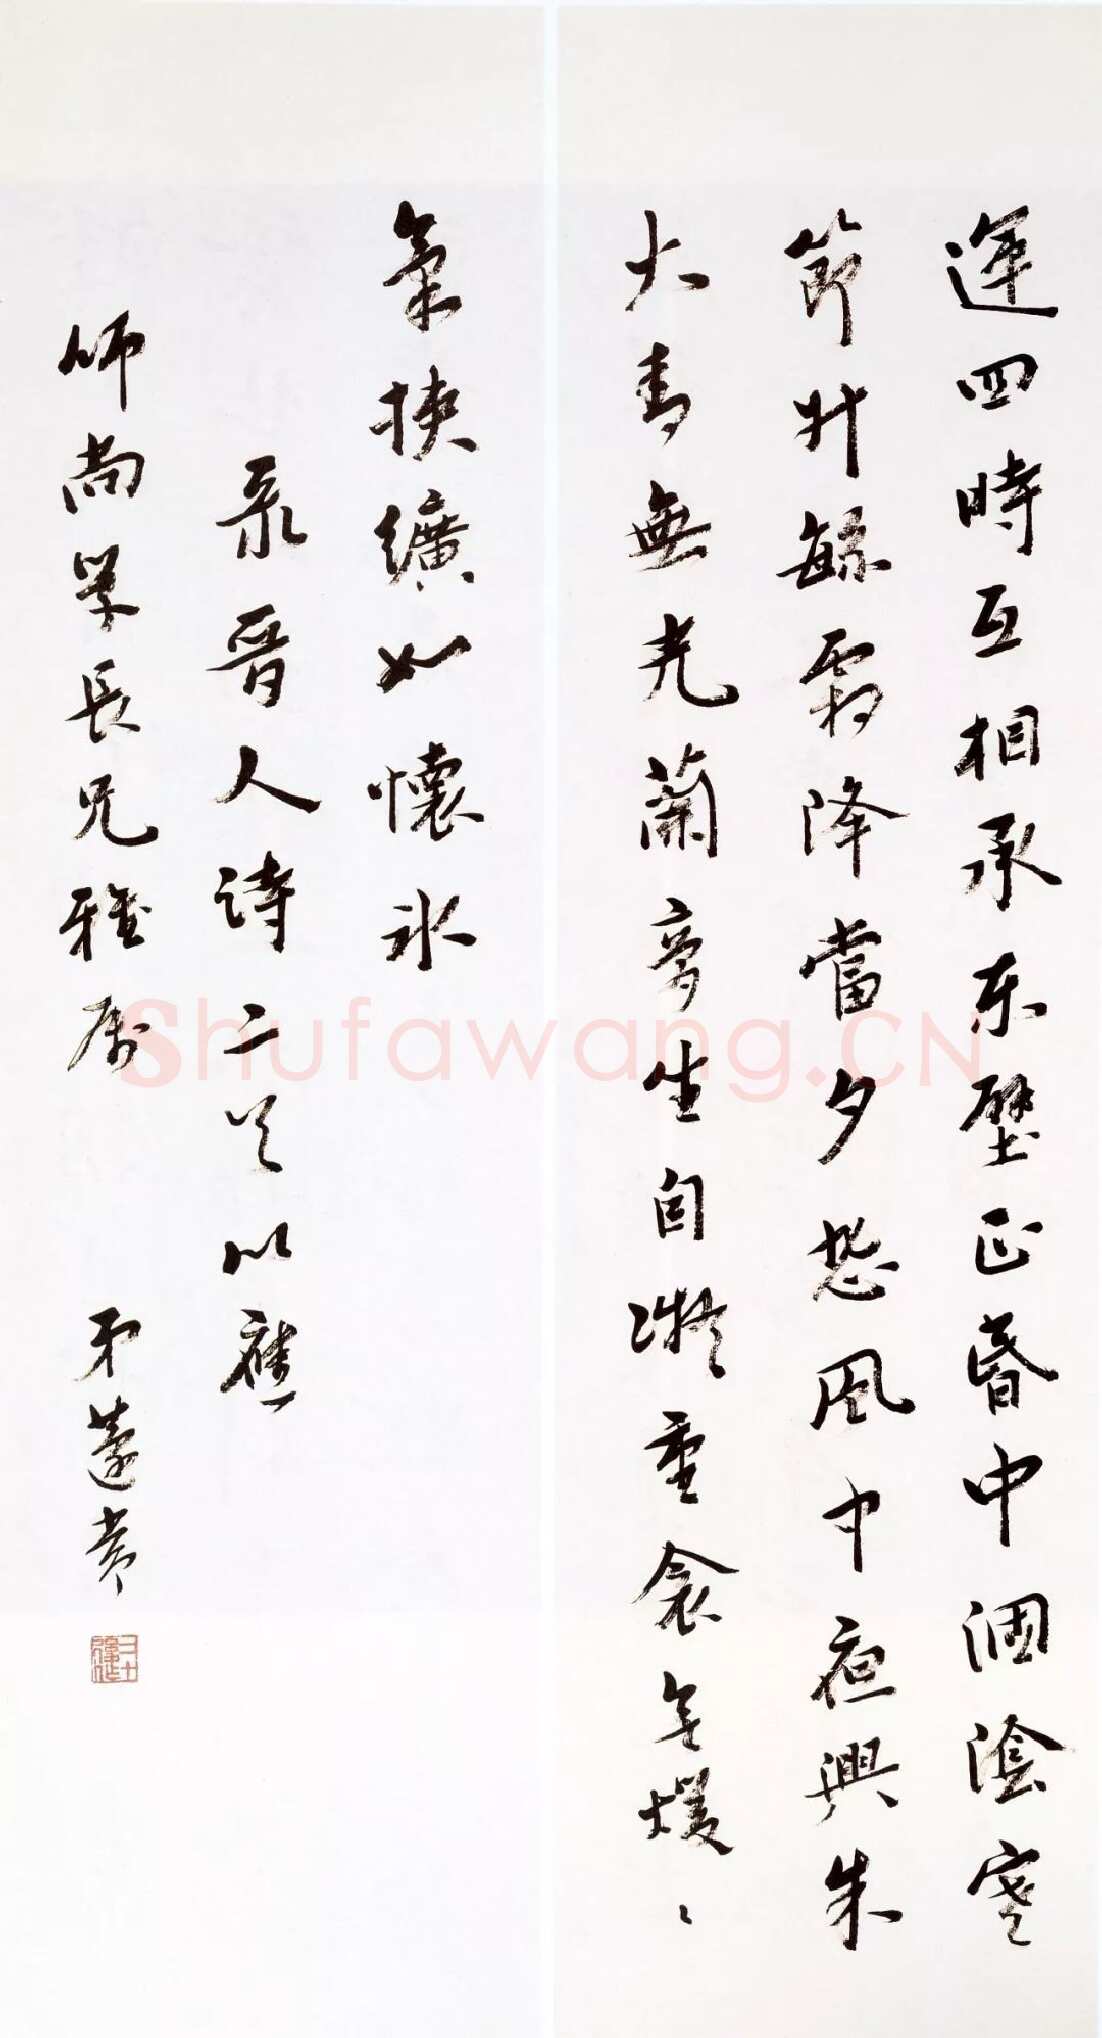 運四時互相承东壁正昏中涸陰寒
節升緐霜降當夕悲風中夜興朱
火青無光蘭膏坐自凝重衾无煖
氣挾纊如懷冰
录晉人詩二首以應
師尚學長兄雅属 弟蘧常
Shufawang.CN